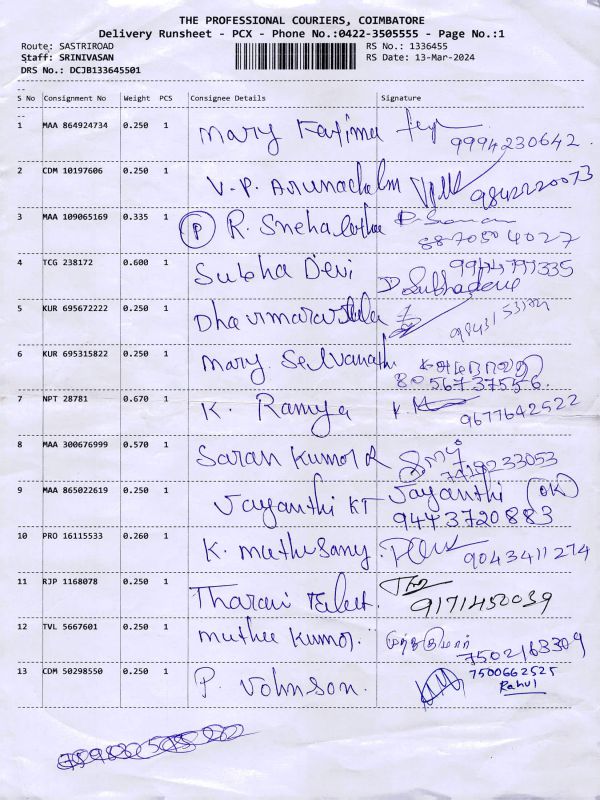 THE PROFESSIONAL COURIERS, COIMBATORE
Delivery Runsheet - PCX - Phone No.:0422-3505555 - Page No.:1
Route: SASTRIROAD RS No.: 1336455
Staff: SRINIVASAN RS Date: 13-Mar-2024
DRS No.: DCJB133645501
S No Consignment No Weight PCS Consignee Details Signature
1 MAA 864924734 0.250 1 Mary Fatima
9994230642.
2 CDM 10197606 0.250 1 V.P. Arunachalm
9842220073
3 MAA 109065169 0.335 1 P R. Snehalatha
8870504027
4 TCG 238172 0.600 1 Subha Devi
D Subhadevi
5 KUR 695672222 0.250 1
6 KUR 695315822 0.250 1 Mary Selvarathi
8056737556.
7 NPT 28781 0.670 1 K. Ramya
9677642522
8 MAA 300676999 0.570 1 Saran Kumar R
9 MAA 865022619 0.250 1 Jayanthi KT Jayanthi OK
9443720883
10 PRO 16115533 0.260 1 K. Muthusamy.
9043411274
11 RJP 1168078 0.250 1 Tharani
9171452039
12 TVL 5667601 0.250 1 Muthu Kumar. முத்துகுமார்
7502163309
13 CDM 50298550 0.250 1 P. Johnson.
7500662525
Rahul